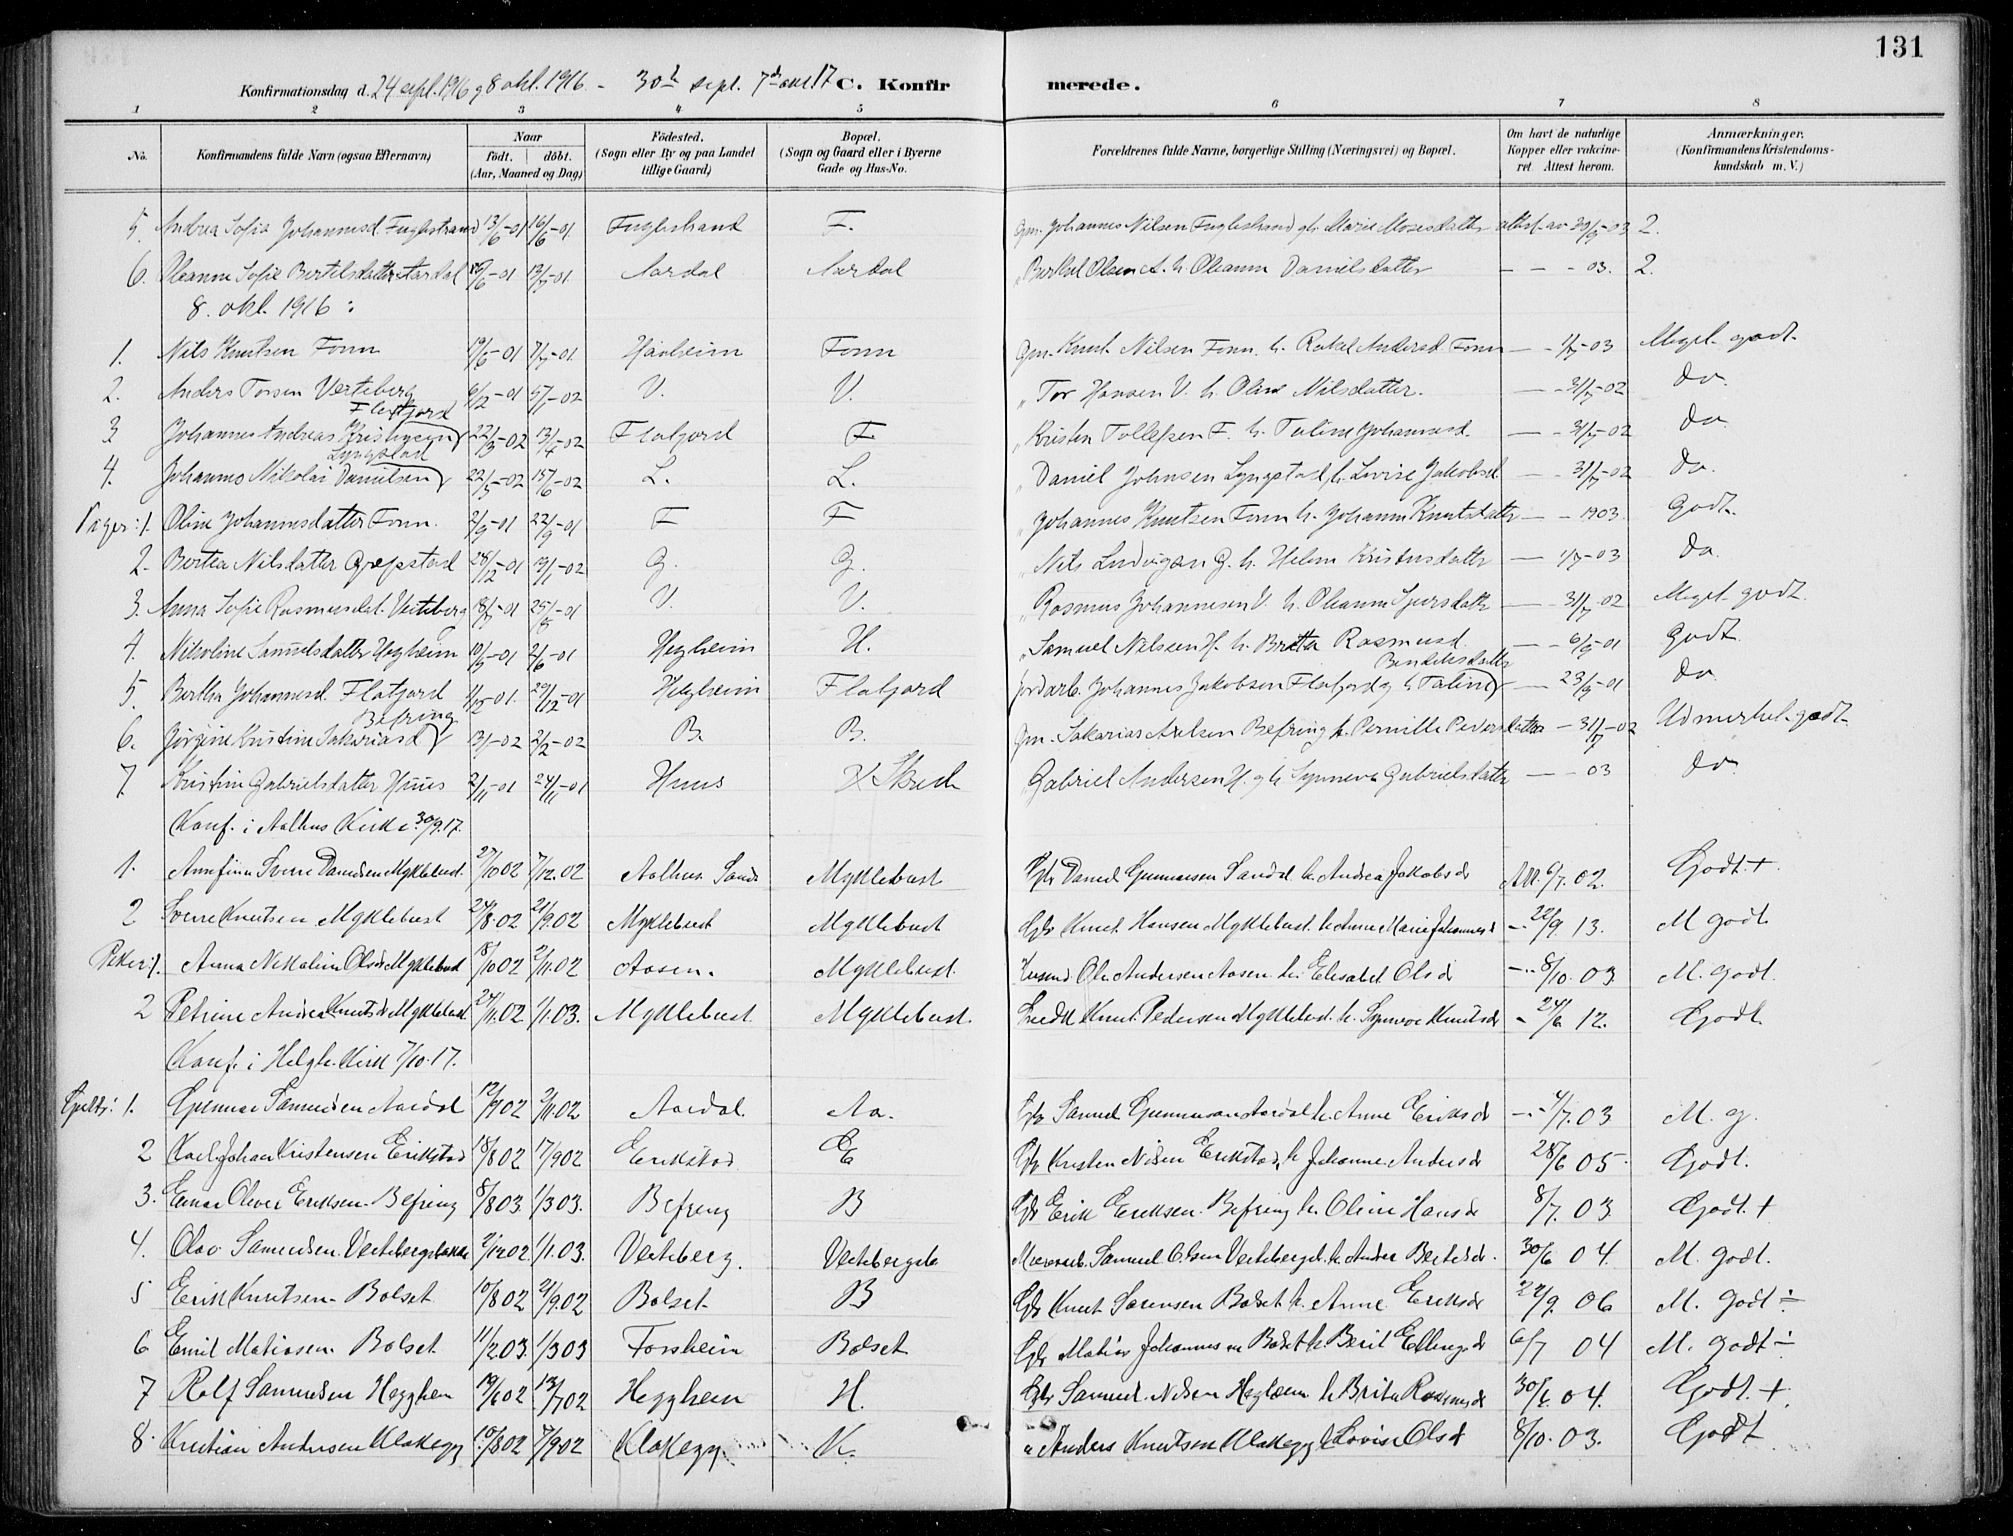 131
Konfirmationsdag d. 24 sept. 1916 og 8 okt. 1916. - 30d sept. 7de okt 17 C. Konfirmerede.
1 2 3 4 5 6 7 8
No. Konfirmandens fulde Navn (ogsaa Efternavn) Naar født. døbt. (Aar, Maaned og Dag) Fødested. (Sogn eller By og paa Landet tillige Gaard) Bopæl. (Sogn og Gaard eller i Byerne Gade og Hus-No. Forældrenes fulde Navne, borgerlige Stilling (Næringsvei) og Bopæl. Om havt de naturlige Kopper eller vakcineret Attest herom. Anmærkninger. (Konfirmandens Kristendomskundskab m. V.)
5. Andrea Sofie Johannesd. Fuglestrand 13/6-01 16/6-01 Fuglestrand F. Gm. Johannes Nilsen Fuglestrand g h. Marie Mosesdatter attest av 30/9-03 2.
6. Oleanna Sofie Bertelsdatter Aardal /6-01 13/7-01 Aardal Aardal " Bertel Olsen A. h. Oleanna Danielsdatter - - - 03. 2.
8. okt. 1916:
1. Nils Knutsen Fonn 19/5-01 7/7-01 Fonn Gm. Knut Nilsen Fonn h. Rakel Andersd. Fonn - - 1/7-03 Meget godt.
2. Anders Torsen Verteberg 6/12-01 5/1-02 V. V. " Tor Hansen V. h. Oline Nilsdatter. - - 31/7-02 do.
3 Johannes Andreas Kristensen Flatjord 22/3-02 13/4-02 Flatjord F " Kristen Tollefsen F. h. Taline Johannesd. - - 31/7-02 do
4. Johannes Nikolai Danielsen Lyngstad 22/5-02 15/6-02 L. L. " Daniel Johnsen Lyngstad h. Lovise Jakobsd. - - 31/7-02 do.
Piger: 1. Oline Johannesdatter Fonn. 2/9-01 22/9-01 F F " Johannes Knutsen Fonn h. Johanna Knutsdatter - - 1903 godt.
2. Bertea Nilsdatter Grepstad 28/12-01 19/1-02 G. G. " Nils Ludvigsen G. h. Helene Kristensdatter - 1/7-03 do.
3. Anna Sofie Rasmusdat. Verteberg 18/7-01 25/8-01 V. V. " Rasmus Johannesen V. h. Oleanna Sjursdatter - - 31/7-02 Meget godt.
4. Nikoline Samuelsdatter Hegheim 10/5-01 2/6-01 Hegheim H. " Samuel Nilsen H. h. Britta Rasmusd. - - 6/9-01 godt.
5. Bertha Johannesd. Flatjord 1/12-01. 29/12-01 Helgheim Flatjord Jordarb. Johannes Jakobsen Flatjord g h Taline Bendiksdatter - 23/9-01 do.
6. Jørgine Kristine Sakariasd. Befring 13/1-02 2/2-02 B. B. Gm. Sakarias Axelsen Befring h. Pernille Pedersdatter - 31/7-02 Udmerket godt.
7 Kristine Gabrielsdatter Huus 2/11-01 24/11-01 Huus Gabriel Andersen H. g h Synneva Gabrielsdatter - - 03 do.
Konf. i Aalhus Kirke 30/9.17.
1. Sverre Danielsen Myklebust. 27/10 02 7/12.02 Aalhus Sande Myklebust Gbr Daniel Gunnarsen Sandal h. Andrea Jakobsdr Att. 6/7. 02. Godt +
2 Sverre Knutsen Myklebust 24/8.02 21/9.02 Myklebust Myklebust Gbr Knut Hansen Myklebust h. Anne Marie Johannesdr -- 22/9 13. M godt
Piker: 1. Anna Nikoline Olsdr Myklebust 18/10 02 2/11.02 Aasen. Myklebust. Husmd Ole Andersen Aasen h. Elisabet Olsdr -- 8/10. 03 M. godt.
2 Petrine Andrea Knutsdr Myklebust. 24/11.02 1/1.03. Myklebust. Myklebust. Knut Pedersen Myklebust. h. Synneve Knutsdr - 24/6 12. Godt
Konf. i Helgh. Kirke 7/10.17.
Gutter: 1. Gunnar Samuelsen Aardal 12/9 02 2/11.02 Aardal. Aa. Gbr Samuel Gunnarsen Aardal h. Anne Eriksdr -- 4/7. 03 M. g.
2 Karl Johan Kristensen Erikstad 18/8 02 17/9 02 Erikstad E Gbr Kristen Nilsen Erikstad, h Johanne Andersdr 28/6 05. Godt.
3. Einar Oliver Eriksen Befring 8/8 03 1/3 03. Befring B Gbr Erik Eriksen Befring h. Oline Hansdr 8/7. 03 Godt. +
4. Olav Samuelsen Vertebergsbakke 2/12 02. 1/1.03. Verteberg. Vertebergsb. Samuel Olsen Vertebergsb. h. Andrea Bertelsdr. 30/6 04. M. godt.
5 Erik Knutsen Bolset 10/8 02 21/9.02 Bolset B Gbr Knut Sørensen Bolset h. Anne Eriksdr 22/9. 06 M. godt ÷
6 Emil Matiasen Bolset 11/2 03. 1/3 03 Forsheim Bolset Gbr Matias Johannesen Bolset h. Berit Ellingsdr 6/7 04 M. godt ÷
7 Rolf Samuelsen Heggheim 19/6 02 13/7 02 Heggheim H. Gbr Samuel Nilsen Hegheim h Brita Rasmusdr 30/6. 04. Godt. +
8. Kristian Andersen Klakegg 10/8 02 7/9 02 Klakegg. K. " Anders Knutsen Klakegg h Lovise Olsd 8/10. 03. Godt